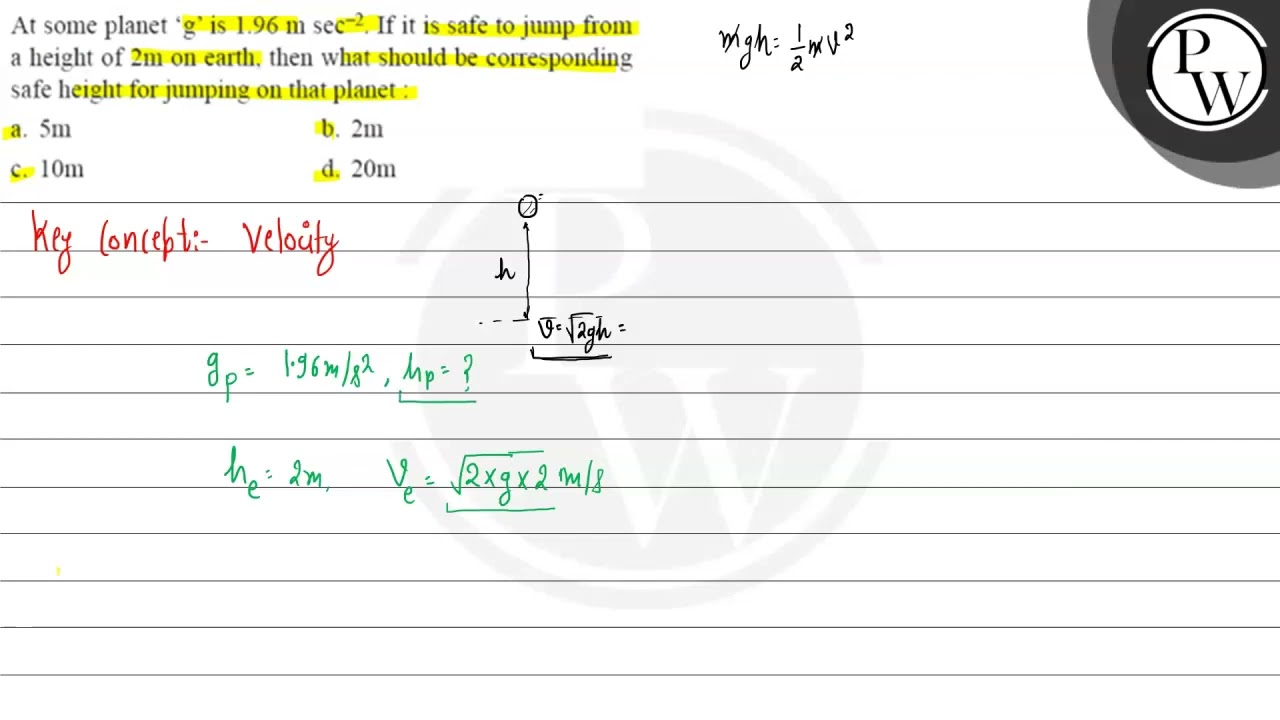 At some planet 'g' is 1.96 m sec⁻². If it is safe to jump from
a height of 2m on earth, then what should be corresponding
safe height for jumping on that planet :
a. 5m b. 2m
c. 10m d. 20m
mgh = 1/2 mv²
P
W
Key Concept:- Velocity
h
v = √2gh =
g_p = 1.96 m/s², h_p = ?
h_e = 2m, v_e = √2×g×2 m/s